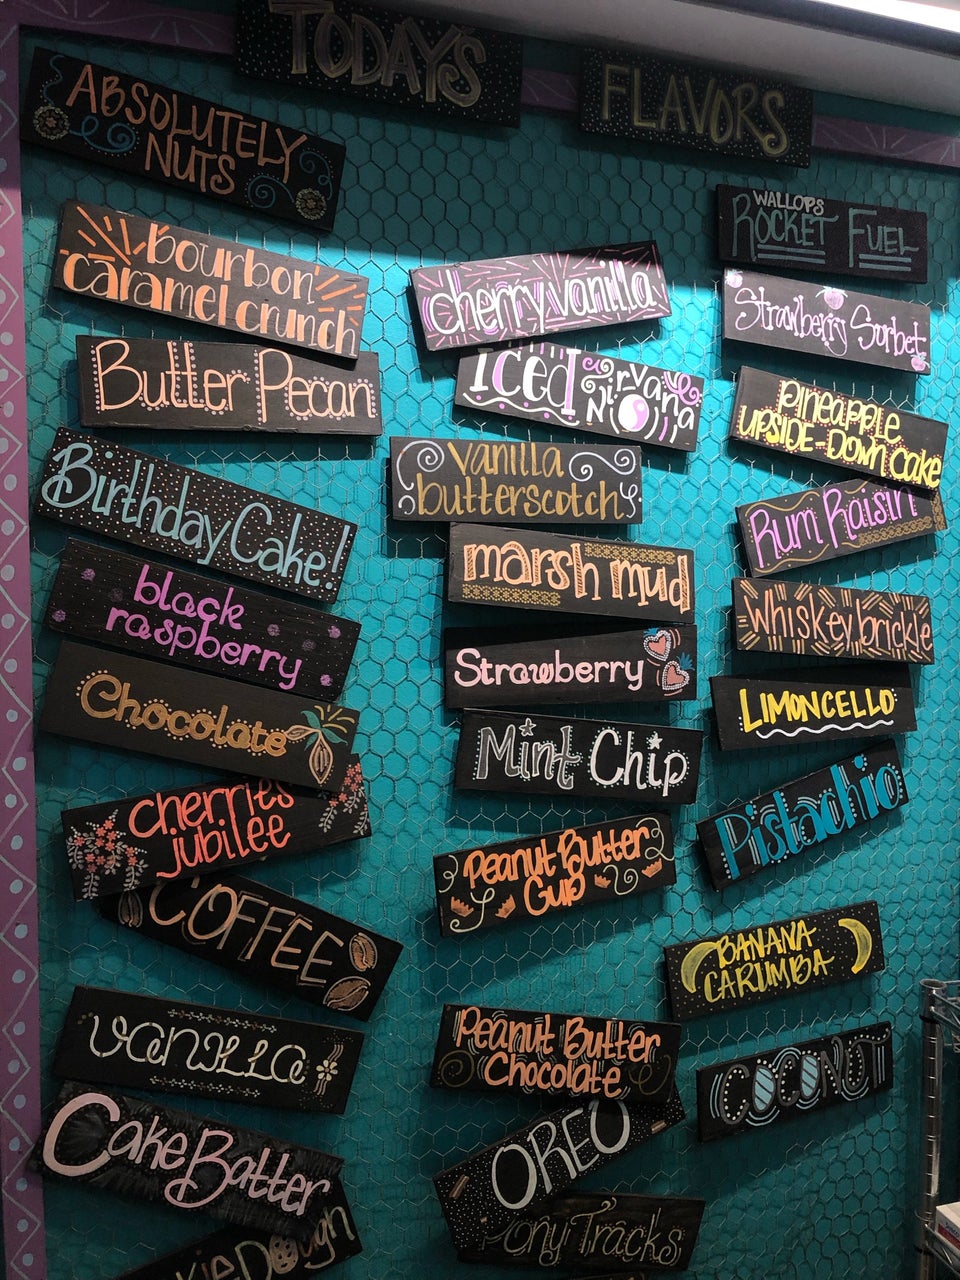 TODAYS
FLAVORS
ABSOLUTELY
NUTS
bourbon
caramel crunch
Butter Pecan
Birthday Cake!
black
raspberry
Chocolate
cherries
jubilee
COFFEE
vanilla
Cake Batter
Dough
cherry vanilla
Iced Nirvana
vanilla
butterscotch
marsh mud
Strawberry
Mint Chip
Peanut Butter
Cup
Peanut Butter
Chocolate
OREO
Pony Tracks
WALLOPS
ROCKET FUEL
Strawberry Sorbet
pineapple
UPSIDE-DOWN cake
Rum Raisin
Whiskey brickle
LIMONCELLO
Pistachio
BANANA
CARUMBA
COCONUT